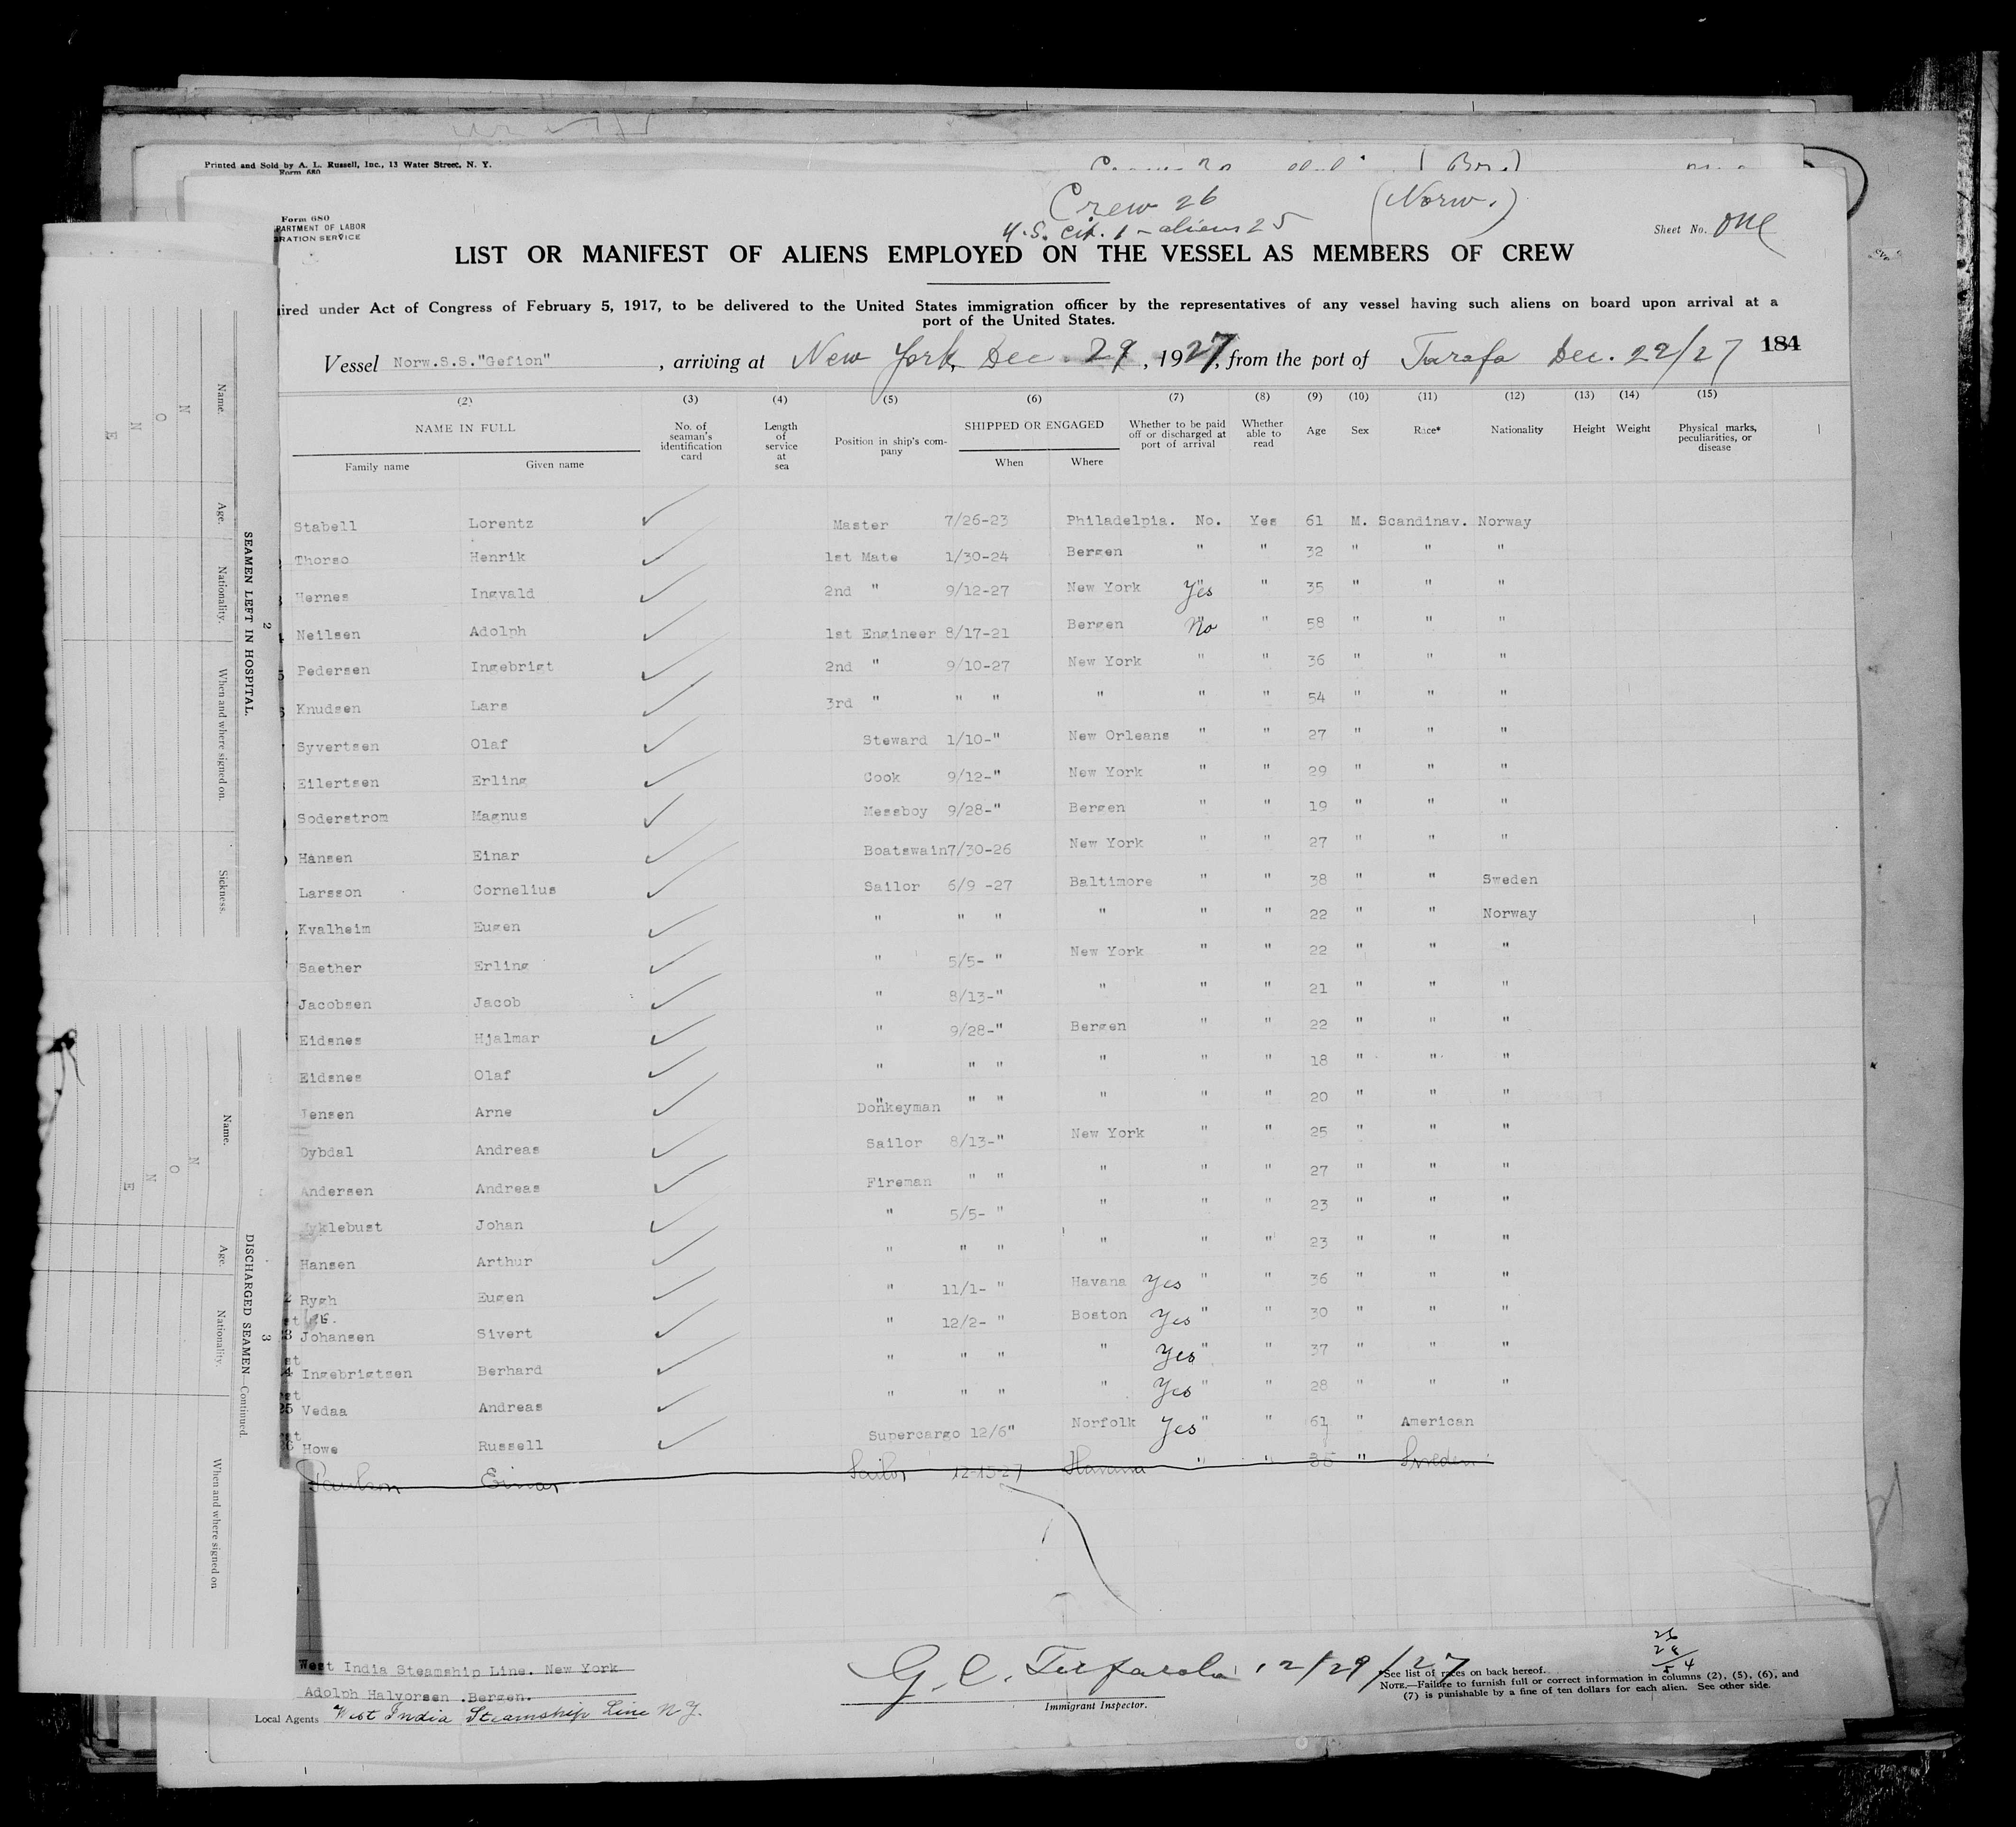 Printed and Sold by A. L. Russell, Inc., 13 Water Street, N. Y.
Form 680
Crew 26 (Norw.)
U.S. cit. 1 - aliens 25
Form 680
PARTMENT OF LABOR
GRATION SERVICE
Sheet No. One
LIST OR MANIFEST OF ALIENS EMPLOYED ON THE VESSEL AS MEMBERS OF CREW
ired under Act of Congress of February 5, 1917, to be delivered to the United States immigration officer by the representatives of any vessel having such aliens on board upon arrival at a
port of the United States.
Vessel Norw.S.S."Gefion" , arriving at New York, Dec. 29, 1927, from the port of Tarafa Dec. 22/27 184
(2) (3) (4) (5) (6) (7) (8) (9) (10) (11) (12) (13) (14) (15)
NAME IN FULL No. of seaman's identification card Length of service at sea Position in ship's company SHIPPED OR ENGAGED Whether to be paid off or discharged at port of arrival Whether able to read Age Sex Race* Nationality Height Weight Physical marks, peculiarities, or disease
Family name Given name When Where
Stabell Lorentz Master 7/26-23 Philadelpia. No. Yes 61 M. Scandinav. Norway
Thorso Henrik 1st Mate 1/30-24 Bergen " " 32 " " "
Hernes Ingvald 2nd " 9/12-27 New York Yes " 35 " " "
Neilsen Adolph 1st Engineer 8/17-21 Bergen No " 58 " " "
5 Pedersen Ingebrigt 2nd " 9/10-27 New York " " 36 " " "
Knudsen Lars 3rd " " " " " " 54 " " "
Syvertsen Olaf Steward 1/10-" New Orleans " " 27 " " "
Eilertsen Erling Cook 9/12-" New York " " 29 " " "
Soderstrom Magnus Messboy 9/28-" Bergen " " 19 " " "
Hansen Einar Boatswain 7/30-26 New York " " 27 " " "
Larsson Cornelius Sailor 6/9 -27 Baltimore " " 38 " " Sweden
Kvalheim Eugen " " " " " " 22 " " Norway
Saether Erling " 5/5- " New York " " 22 " " "
Jacobsen Jacob " 8/13-" " " " 21 " " "
Eidsnes Hjalmar " 9/28-" Bergen " " 22 " " "
Eidsnes Olaf " " " " " " 18 " " "
Jensen Arne Donkeyman " " " " " 20 " " "
Dybdal Andreas Sailor 8/13-" New York " " 25 " " "
Andersen Andreas Fireman " " " " " 27 " " "
yklebust Johan " 5/5- " " " " 23 " " "
Hansen Arthur " " " " " " 23 " " "
2 Rygh Eugen " 11/1- " Havana Yes " " 36 " " "
3 Johansen Sivert " 12/2- " Boston Yes " " 30 " " "
4 Ingebrigtsen Berhard " " " " Yes " " 37 " " "
25 Vedaa Andreas " " " " Yes " " 28 " " "
26 Howe Russell Supercargo 12/6" Norfolk Yes " " 61 " American
Paulson Einar Sailor 12-15-27 Havana " " 36 " Sweden
West India Steamship Line. New York
Adolph Halvorsen .Bergen.
Local Agents West India Steamship Line N.Y.
12/29/27
Immigrant Inspector.
26
28
54
*See list of races on back hereof.
NOTE.—Failure to furnish full or correct information in columns (2), (5), (6), and
(7) is punishable by a fine of ten dollars for each alien. See other side.
2
SEAMEN LEFT IN HOSPITAL.
Name. Age. Nationality. When and where signed on. Sickness.
N O N E
3
DISCHARGED SEAMEN—Continued.
Name. Age. Nationality. When and where signed on
N O N E